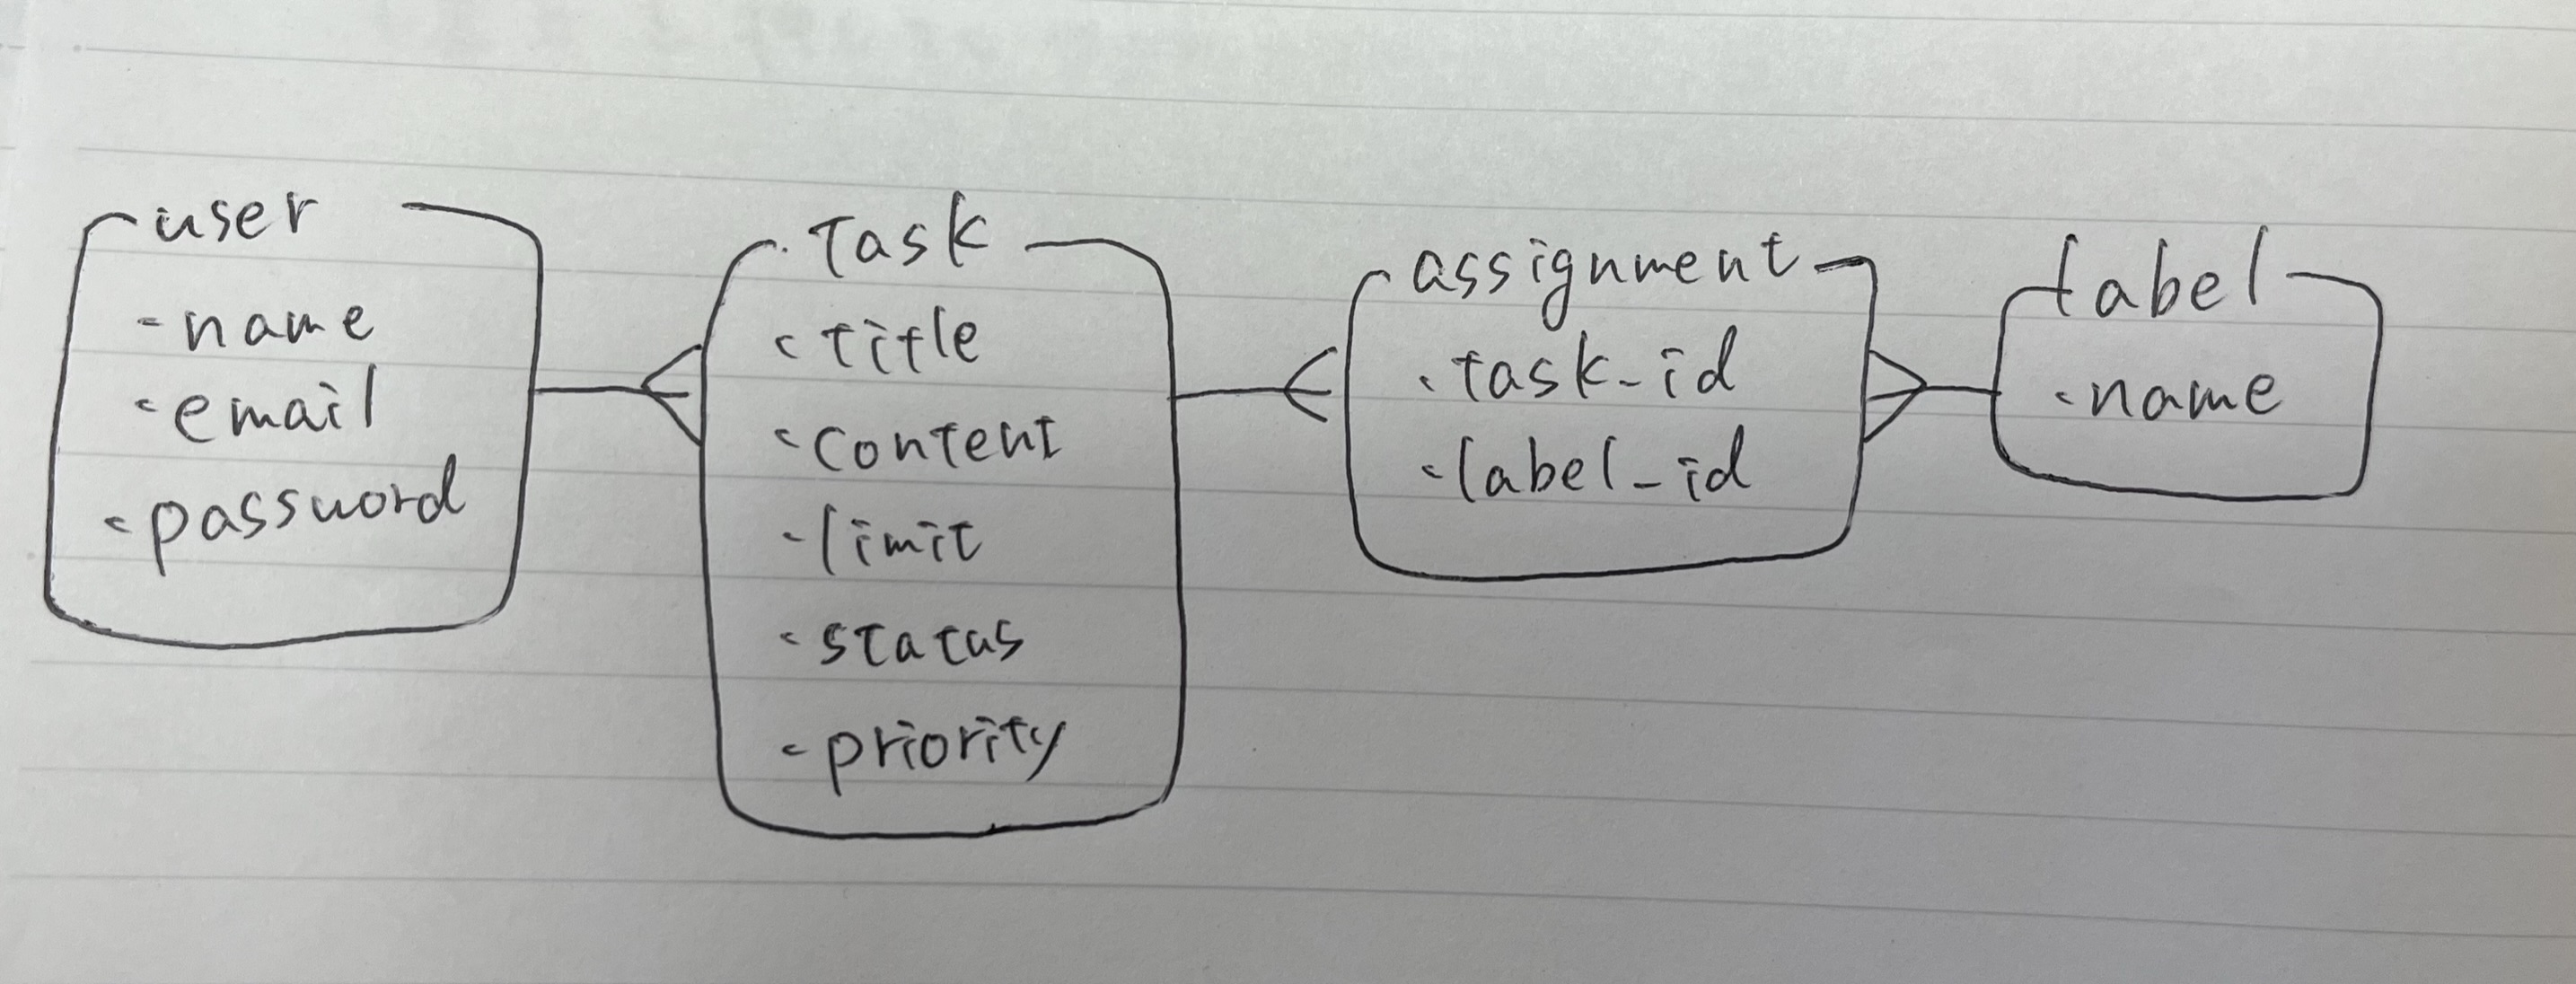 user
-name
-email
-password
Task
-title
-content
-limit
-status
-priority
assignment
-task_id
-label_id
label
-name